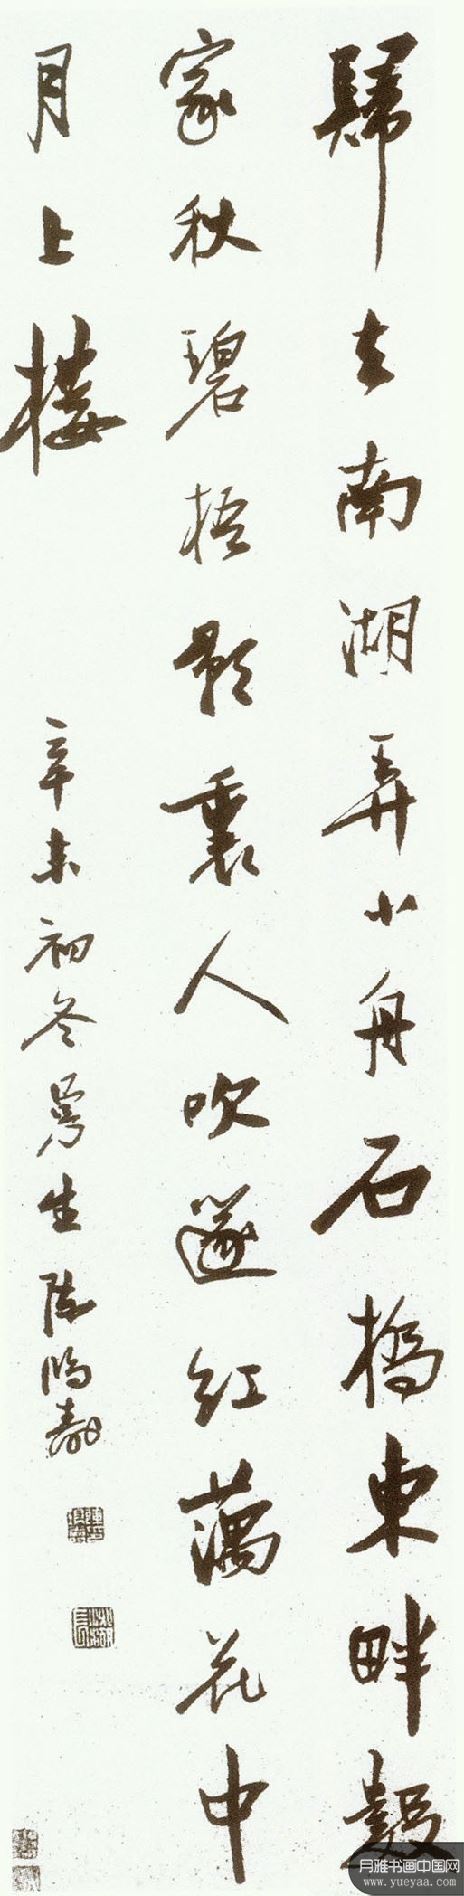 歸去南湖弄小舟石橋東畔數
家秋碧梧影裏人吹篴紅藕花中
月上樓
辛未初冬曼生陳鴻壽
月雅书画中国网
www.yueyaa.com